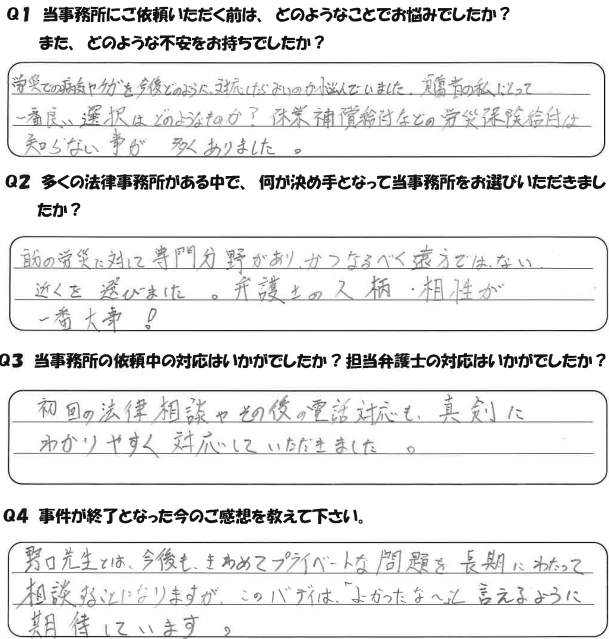 Q1 当事務所にご依頼いただく前は、どのようなことでお悩みでしたか？
また、どのような不安をお持ちでしたか？
労災での病気やケガを今後どのように対応したらよいのか悩んでいました。負傷者の私にとって
一番良い選択はどのようなものか？休業補償給付などの労災保険給付は
知らない事が多くありました。
Q2 多くの法律事務所がある中で、何が決め手となって当事務所をお選びいただきまし
たか？
労災に対して専門分野があり、かつなるべく遠方ではない
近くを選びました。弁護士の人柄・相性が
一番大事！
Q3 当事務所の依頼中の対応はいかがでしたか？担当弁護士の対応はいかがでしたか？
初回の法律相談やその後の電話対応も、真剣に
わかりやすく対応していただきました。
Q4 事件が終了となった今のご感想を教えて下さい。
野口先生とは、今後も、きわめてプライベートな問題を長期にわたって
相談することになりますが、このバディは、「よかったな～」と言えるように
期待しています。